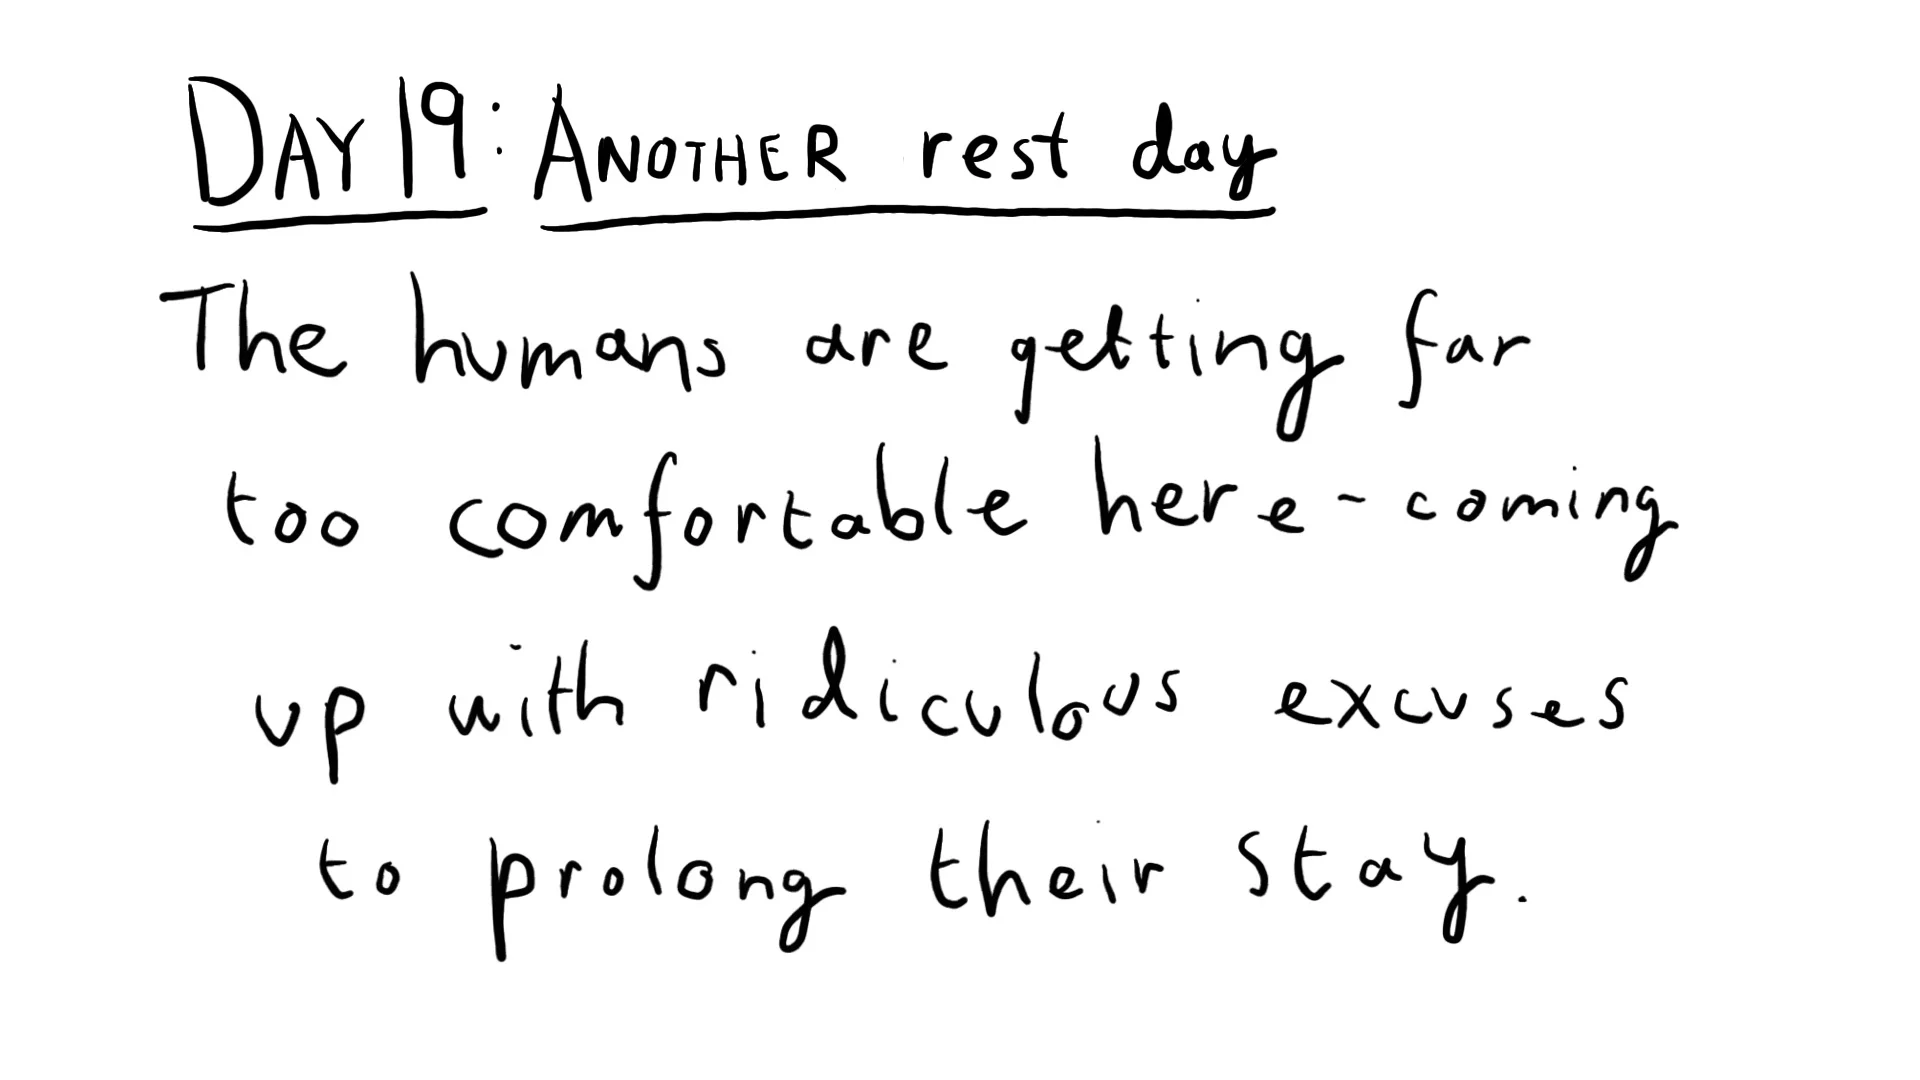 DAY 19: ANOTHER rest day
The humans are getting far
too comfortable here - coming
up with ridiculous excuses
to prolong their stay.